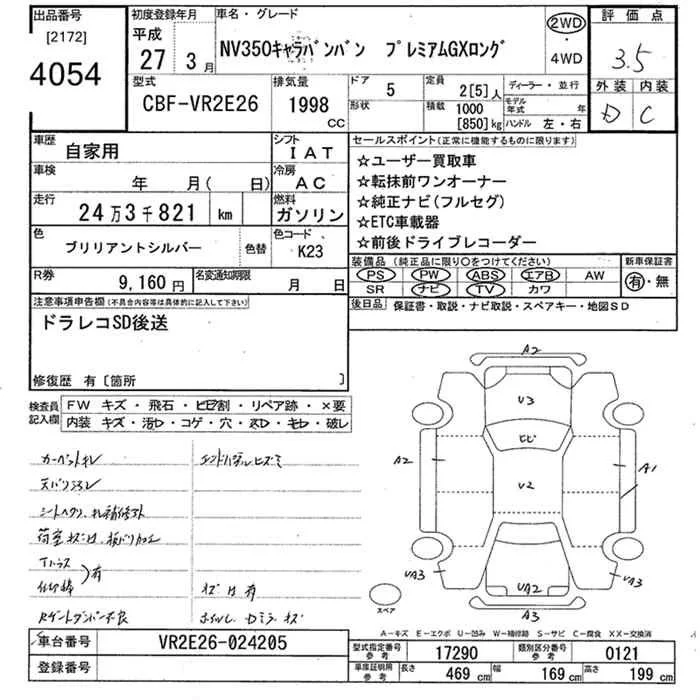 出品番号
[2172]
4054
初度登録年月
平成
27 3月
車名・グレード
NV350キャラバンバン プレミアムGXロング
2WD
・
4WD
評価点
3.5
外装 内装
D C
型式
CBF-VR2E26
排気量
1998
CC
ドア
5
形状
定員
2[5]人
積載
1000
[850]kg
ディーラー・並行
モデル年式 年
ハンドル 左・右
車歴
自家用
シフト
IAT
車検
年 月( 日)
冷房
AC
走行
24万3千821 km
燃料
ガソリン
色
ブリリアントシルバー
色替
色コード
K23
R券
9,160円
名変通知期限
月 日
セールスポイント(正常に機能するものに限ります)
☆ユーザー買取車
☆転抹前ワンオーナー
☆純正ナビ(フルセグ)
☆ETC車載器
☆前後ドライブレコーダー
装備品(純正品に限り○をつけてください)
PS PW ABS エアB AW
SR ナビ TV カワ
新車保証書
有・無
後日品 保証書・取説・ナビ取説・スペアキー・地図SD
注意事項申告欄(不具合内容等は具体的に記入して下さい)
ドラレコSD後送
修復歴 有〔箇所 〕
検査員
記入欄
FW キズ・飛石・ヒビ割・リペア跡・×要
内装 キズ・汚D・コゲ・穴・ネD・キD・破レ
シートヘタリ
有
キズ 有
A2
V3
A2
V2
A1
UA3
UA2
UA3
A3
スペア
A-キズ E-エクボ U-凹み W-補修跡 S-サビ C-腐食 XX-交換済
車台番号
VR2E26-024205
登録番号
型式指定番号
参考
17290
類別区分番号
参考
0121
車庫証明用
参考
長さ
469 cm
幅
169 cm
高さ
199 cm